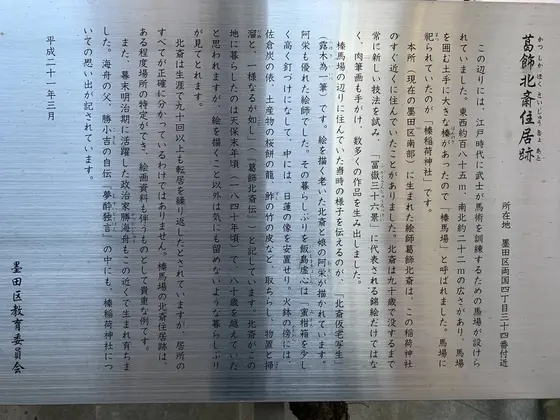 かつしかほくさいじゅうきょあと
葛飾北斎住居跡
所在地　墨田区両国四丁目三十四番付近
この辺りには、江戸時代に武士が馬術を訓練するための馬場が設けら
れていました。東西約百八十五m、南北約二十二mの広さがあり、馬場
を囲む土手に大きな榛があったので「榛馬場」と呼ばれました。馬場に
祀られていたのが「榛稲荷神社」です。
本所（現在の墨田区南部）に生まれた絵師葛飾北斎は、この稲荷神社
のすぐ近くに住んでいたことがありました。北斎は九十歳で没するまで
常に新しい技法を試み、「冨嶽三十六景」に代表される錦絵だけではな
く、肉筆画も手がけ、数多くの作品を生み出しました。
榛馬場の辺りに住んでいた当時の様子を伝えるのが、「北斎仮宅写生」
（露木為一筆）です。絵を描く老いた北斎と娘の阿栄が描かれています。
阿栄も優れた絵師でした。その暮らしぶりを飯島虚心は「蜜柑箱を少し
く高く釘づけになして、中には、日蓮の像を安置せり。火鉢の傍には、
佐倉炭の俵、土産物の桜餅の籠、鮓の竹の皮など、取ちらし、物置と掃
溜と、一様なるが如し」（『葛飾北斎伝』）と記しています。北斎がこの
地に暮らしたのは天保末年頃（一八四〇年頃）で、八十歳を越えていた
と思われますが、絵を描くこと以外は気にも留めないような暮らしぶり
が見てとれます。
北斎は生涯で九十回以上も転居を繰り返したとされていますが、居所の
すべてが正確に分かっているわけではありません。榛馬場の北斎住居跡は、
ある程度場所の特定ができ、絵画資料も伴うものとして貴重な例です。
また、幕末明治期に活躍した政治家勝海舟もこの近くで生まれ育ちま
した。海舟の父、勝小吉の自伝『夢酔独言』の中にも、榛稲荷神社につ
いての思い出が記されています。
平成二十一年三月
墨田区教育委員会